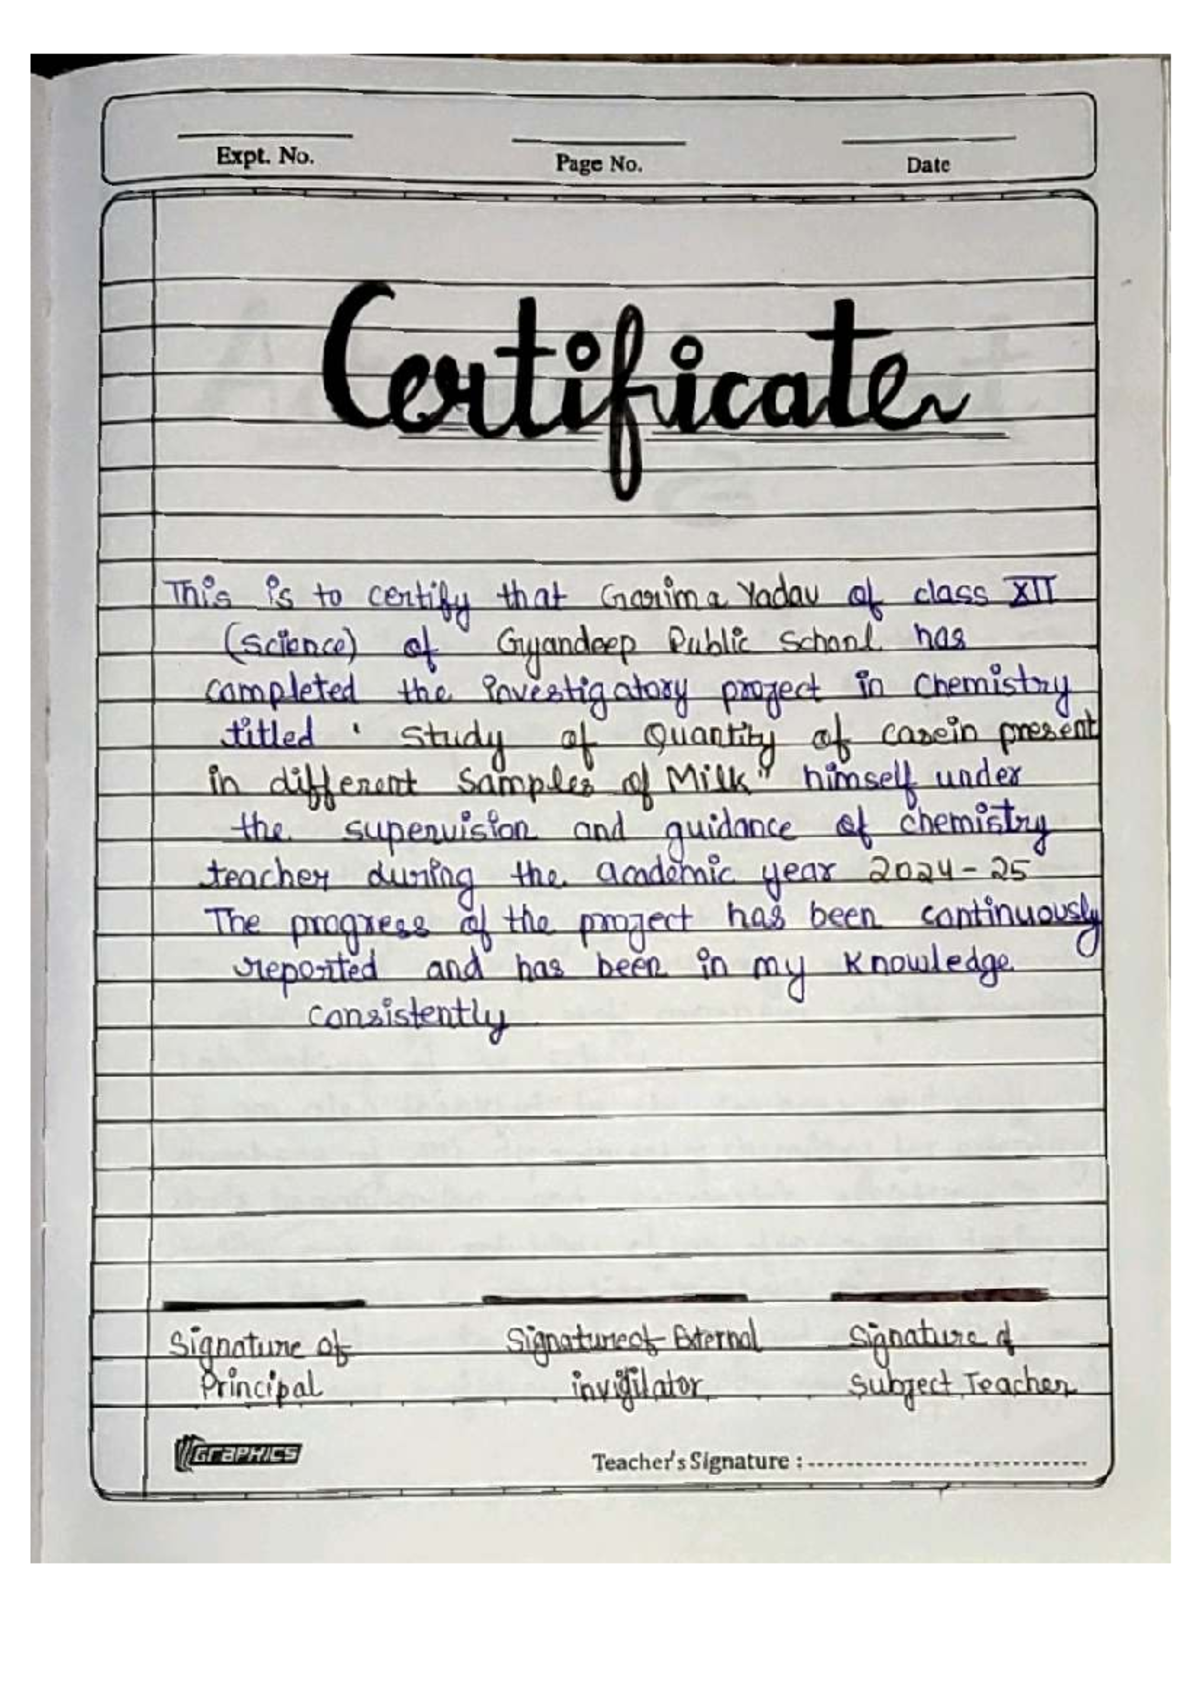 Expt. No. Page No. Date
Certificate
This is to certify that Garima Yadav of class XII
(Science) of Gyandeep Public School has
completed the investigatory project in Chemistry
titled ' Study of Quantity of casein present
in different Samples of Milk" himself under
the supervision and guidance of chemistry
teacher during the academic year 2024-25
The progress of the project has been continuously
reported and has been in my knowledge
consistently
Signature of Signature of External Signature of
Principal invigilator Subject Teacher
GRAPHICS Teacher's Signature :